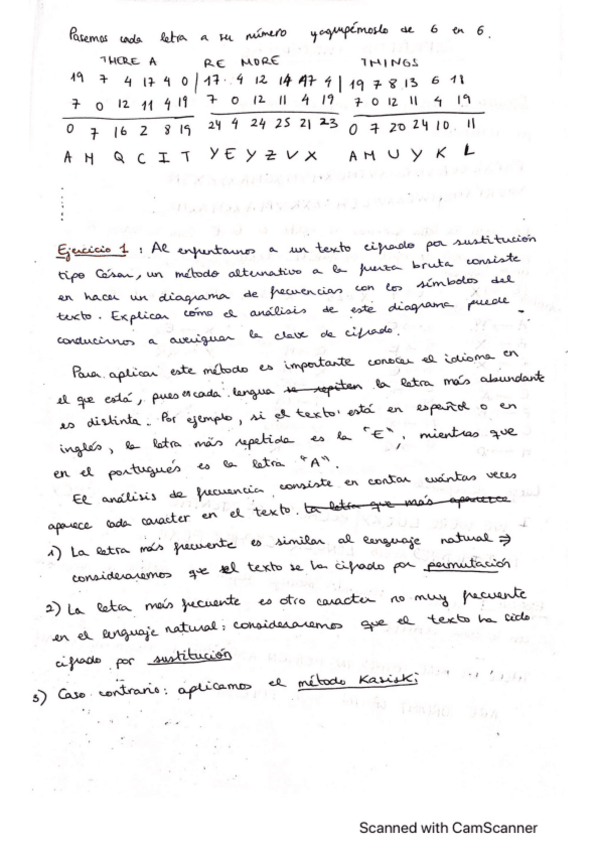 Pasemos cada letra a su número y agrupémoslo de 6 en 6.
THERE A RE MORE THINGS
19 7 4 17 4 0 | 17 4 12 14 17 4 | 19 7 8 13 6 18
7 0 12 11 4 19 7 0 12 11 4 19 7 0 12 11 4 19
0 7 16 2 8 19 24 4 24 25 21 23 0 7 20 24 10 11
A H Q C I T Y E Y Z V X A H U Y K L
Ejercicio 1: Al enfrentarnos a un texto cifrado por sustitución
tipo César, un método alternativo a la fuerza bruta consiste
en hacer un diagrama de frecuencias con los símbolos del
texto. Explicar cómo el análisis de este diagrama puede
conducirnos a averiguar la clave de cifrado.
Para aplicar este método es importante conocer el idioma en
el que está, pues en cada lengua se repiten la letra más abundante
es distinta. Por ejemplo, si el texto está en español o en
inglés, la letra más repetida es la "E", mientras que
en el portugués es la letra "A".
El análisis de frecuencia consiste en contar cuántas veces
aparece cada caracter en el texto. La letra que más aparece
1) La letra más frecuente es similar al lenguaje natural ⇒
consideraremos que el texto se ha cifrado por permutación.
2) La letra más frecuente es otro caracter no muy frecuente
en el lenguaje natural: consideraremos que el texto ha sido
cifrado por sustitución
3) Caso contrario: aplicamos el método Kasiski
Scanned with CamScanner